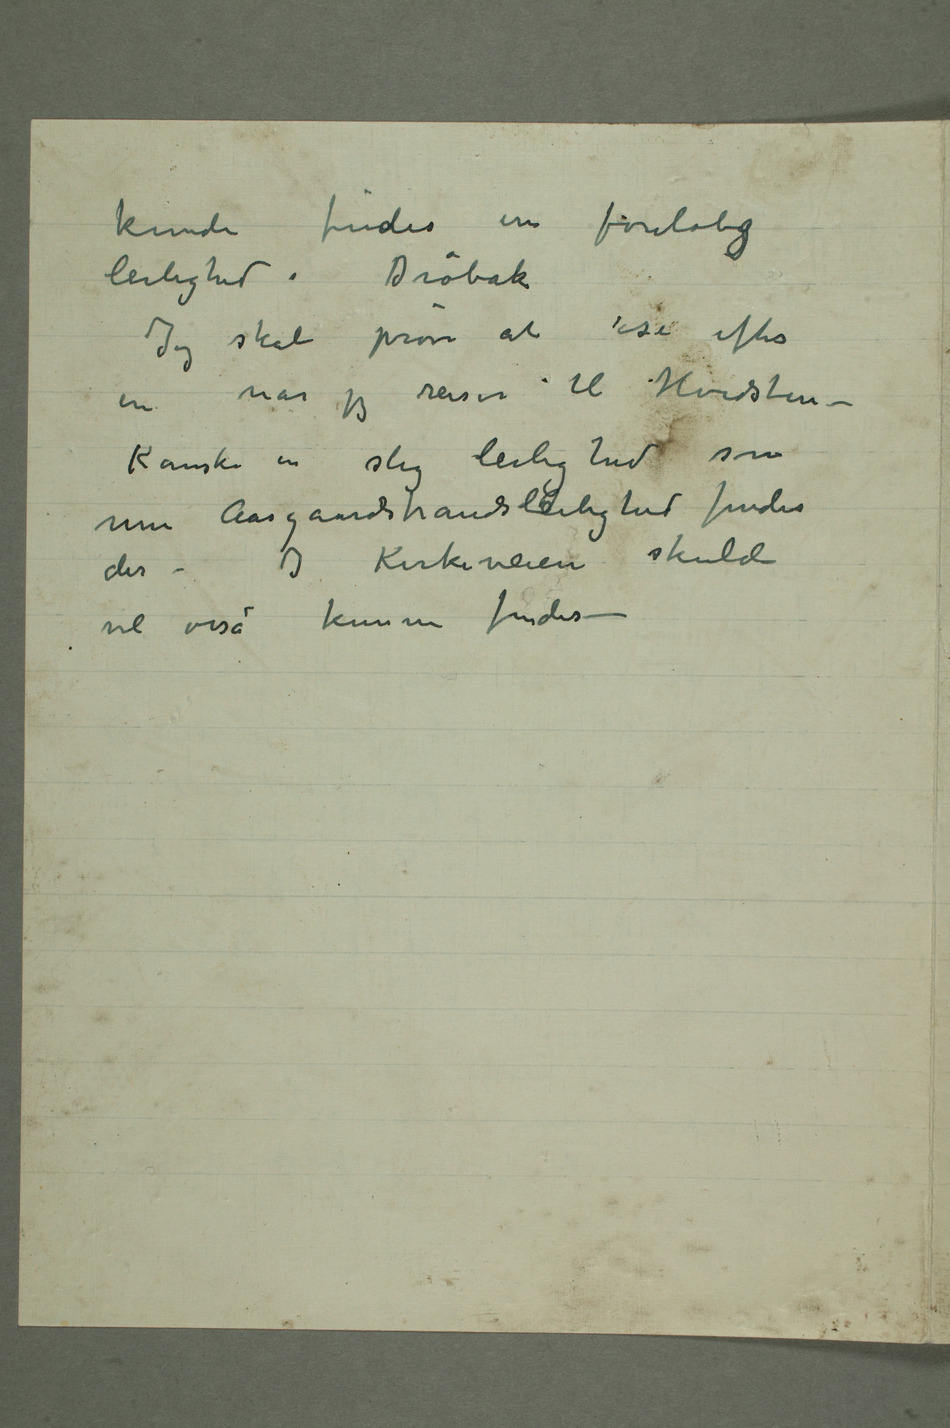 kunde findes en foreløbig
leilighed i Drøbak
Jeg skal prøve at se efter
en når jeg reiser til Hvidsten –
Kanske en slig leilighed som
min Aasgaardstrandsleilighed findes
der – I Kirkeveien skulde
vel også kunne findes –